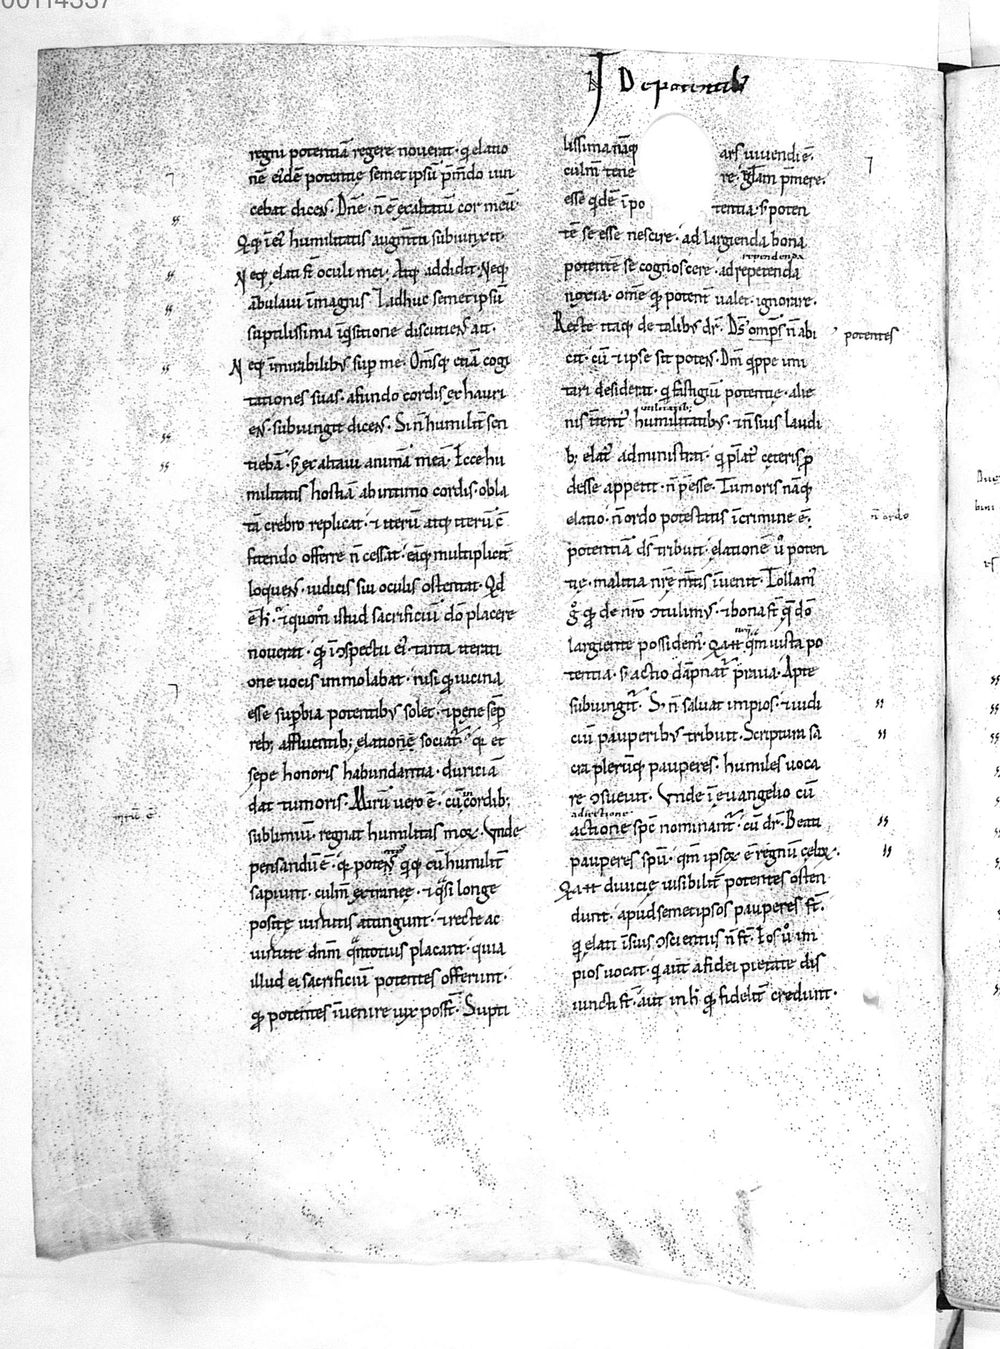 00114337
N De potentib;
regni potentiā regere nouerat · q elatio
nē eidē potentie semetipsū p̄mdo uin
cebat dicens. Dn̄e · n̄ ē exaltatū cor meū
Qq̨ i ei humilitatis augm̄ta subiunxit·
Neq; elati st̄ oculi mei. Atq; addidit. Neq;
ābulaui in magnis ⁊ adhuc semetipsū
suptilissima inq̄sitione discutiens ait·
Neq; in mirabilibȝ sup me. Om̄sq; etiā cogi
tationes suas · a fundo cordis exhauri
ens · subiungit dicens. Si n̄ humilit̄ sen
tiebā · s; exaltaui animā meā. Ecce hu
militatis hostiā ab intimo cordis · obla
tā crebro replicat · ⁊ iterū atq; iterū c̄
fitendo offerre n̄ cessat · eāq; multiplicit̄
loquens · iudicis sui oculis ostentat. Qd
ē h̄. ⁊ quom̄ istud sacrificiū dō placere
nouerat · q̄ i ɔspectu ei · tanta iterati
one uocis immolabat · nisi q̄ uicina
esse supbia potentibȝ solet · ⁊ pene sep̄
reb; affluentib; elatione sociat · q̨ et
sepe honoris habundantia · duriciā
dat tumoris. Mirū uero ē · cū in cordib;
sublimiū · regnat humilitas mox̨. Vnde
pensandū ē · q̨ potens q̨q̨ cū humilit̄
sapiunt · culm̄ extranee · ⁊ q̄si longe
posite uirtutis attingunt · ⁊ recte ac
uirtute dnm̄ q̄ntotius placant · quia
illud ei sacrificiū potentes offerunt ·
q̨ potentes inuenire uix poss̄t. Supti
lissima nāq;
ars uiuendi ē·
culm̄ tene
re · gl̄am p̄mere ·
esse q̄dē i po
tentia · s; poten
tē se esse nescire · ad largienda bona
rependenda
potentē se cognoscere · ad repetenda
noxia · om̄e q̨ potent̄ ualet · ignorare ·
Recte itaq; de talibȝ dr̄. Ds̄ omp̄s n̄ abi
potentes
cit · cū ⁊ ipse sit potens. Dm̄ q̨ppe imi
tari desiderat · q̨ fastigiū potentie · alie
humilitatibȝ · ⁊ n̄ suis laudi
b; elat̄ administrat · q̨ plat̄ ceteris p
desse appetit · n̄ p̄esse. Tumoris nāq;
elatio · n̄ ordo potestatis i crimine ē.
n̄ ordo
potentiā ds̄ tribuit · elationē ū poten
tie · malitia nr̄e m̄tis inuenit. Tollam
g̊ q̨ de nr̄o ɔtulimȝ · ⁊ bona st̄ q̄ dō
largiente possidem̄ · q̄m iusta po
tentia · s; actio dāpnat̄ praua. Apte
subiungit̄. S; n̄ saluat impios · ⁊ iudi
ciū pauperibȝ tribuit. Scriptura sa
cra plerūq; pauperes · humiles uoca
re ɔsueuit. Vnde i euangelio cū
adiectione
actione spc̄ nominant̄ · cū dr̄. Beati
pauperes spū · qm̄ ipsox̨ ē regnū celox̨ ·
diuicie uisibilit̄ potentes osten
dunt · apud semetipsos pauperes st̄ ·
q̨ elati i suis ɔscientiis n̄ st̄. Eos ū im
pios uocat · q̨ aut a fidei pietate dis
iuncti st̄ · aut in h̄ q̨ fidelit̄ credunt ·